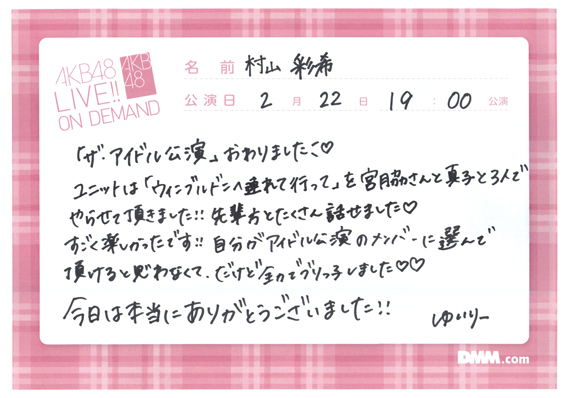 AKB48
LIVE!!
ON DEMAND
AKB
48
名前 村山 彩希
公演日 2月22日 19:00 公演
「ザ・アイドル公演」おわりました♡
ユニットは「ウィンブルドンへ連れて行って」を宮脇さんと真子と3人で
やらせて頂きました!! 先輩方とたくさん話せました♡
すごく楽しかったです!! 自分がアイドル公演のメンバーに選んで
頂けると思わなくて、だけど全力でブリっ子しました♡♡
今日は本当にありがとうございました!!
ゆいりー
DMM.com